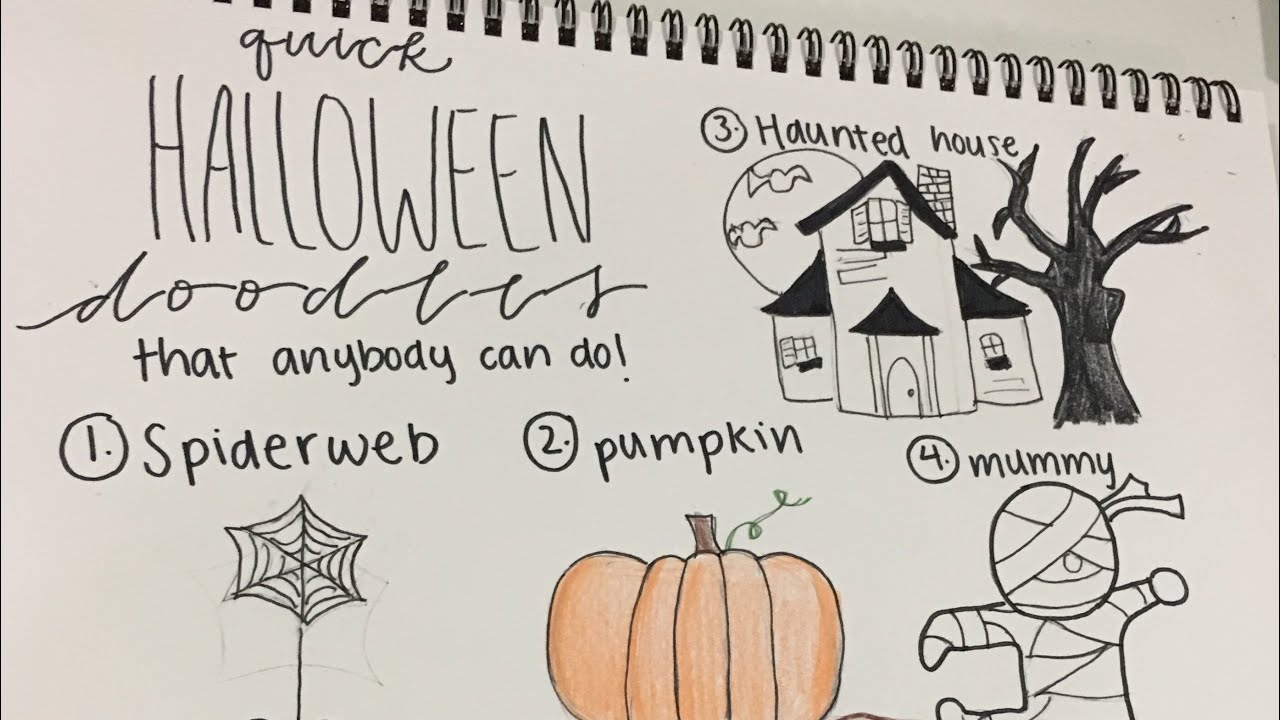 quick
HALLOWEEN
doodles
that anybody can do!
1. Spiderweb
2. pumpkin
3. Haunted house
4. mummy